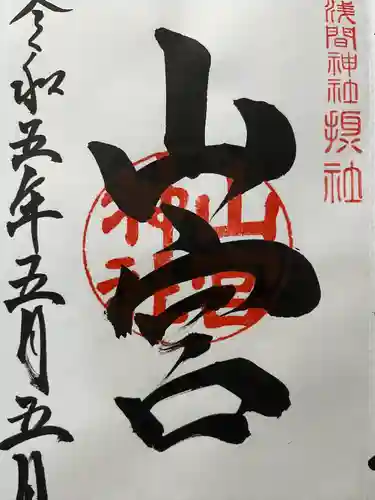 浅間神社摂社
山宮
山宮神社
令和五年五月五日